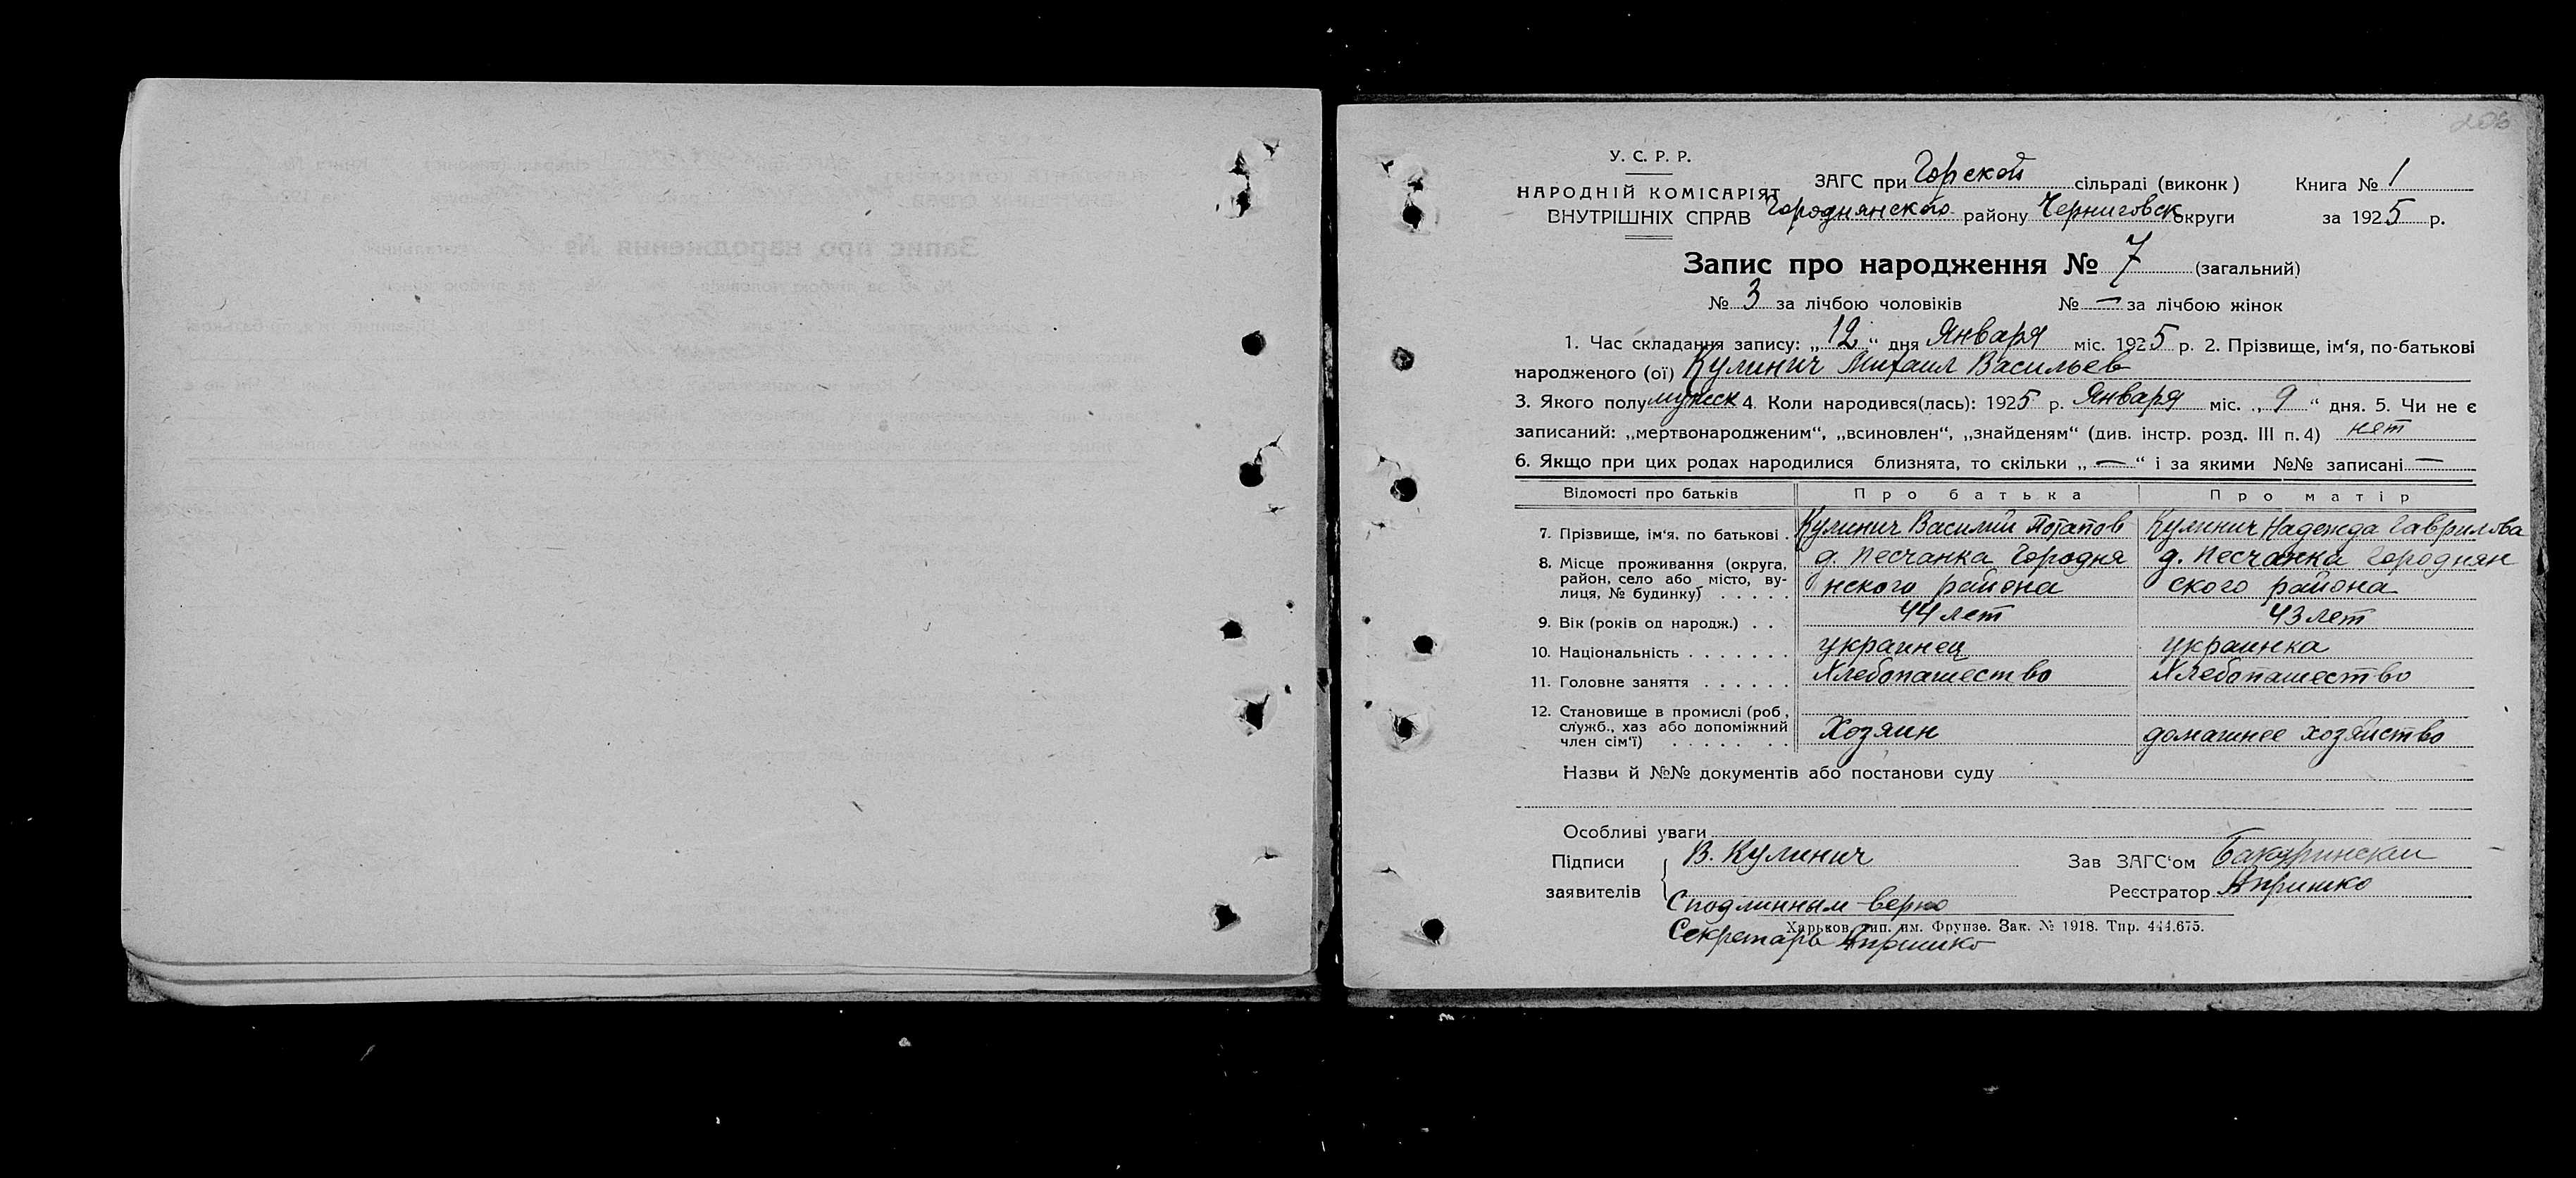 206
У. С. Р. Р.
НАРОДНІЙ КОМІСАРІЯТ
ВНУТРІШНІХ СПРАВ
ЗАГС при Горской сільраді (виконк) Книга № 1
Городнянского району Черниговск округи за 1925 р.
Запис про народження № 7 (загальний)
№ 3 за лічбою чоловіків № — за лічбою жінок
1. Час складання запису: „12“ дня Января міс. 1925 р. 2. Прізвище, ім‘я, по-батькові
народженого (ої) Кулинич Михаил Васильев
3. Якого полу мужск 4. Коли народився(лась): 1925 р. Января міс. „9“ дня. 5. Чи не є
записаний: „мертвонародженим“, „всиновлен“, „знайденям“ (див. інстр. розд. III п. 4) нет
6. Якщо при цих родах народилися близнята, то скільки „—“ і за якими №№ записані —
Відомості про батьків Про батька Про матір
7. Прізвище, ім‘я, по батькові . Кулинич Василий Потапов Кулинич Надежда Гаврилова
8. Місце проживання (округа, район, село або місто, вулиця, № будинку) . . . . . д. Песчанка Городнянского района д. Песчанка Городнянского района
9. Вік (років од народж.) . . 44 лет 43 лет
10. Національність . . . . . . . украинец украинка
11. Головне заняття . . . . . . Хлебопашество Хлебопашество
12. Становище в промислі (роб., служб., хаз або допоміжний член сім‘ї) . . . . . . . Хозяин домашнее хозяйство
Назви й №№ документів або постанови суду
Особливі уваги
Підписи заявителів В. Кулинич
Зав ЗАГС‘ом
Реєстратор
С подлинным верно
Секретарь
Харьков, тип. им. Фрунзе. Зак. № 1918. Тир. 444.675.